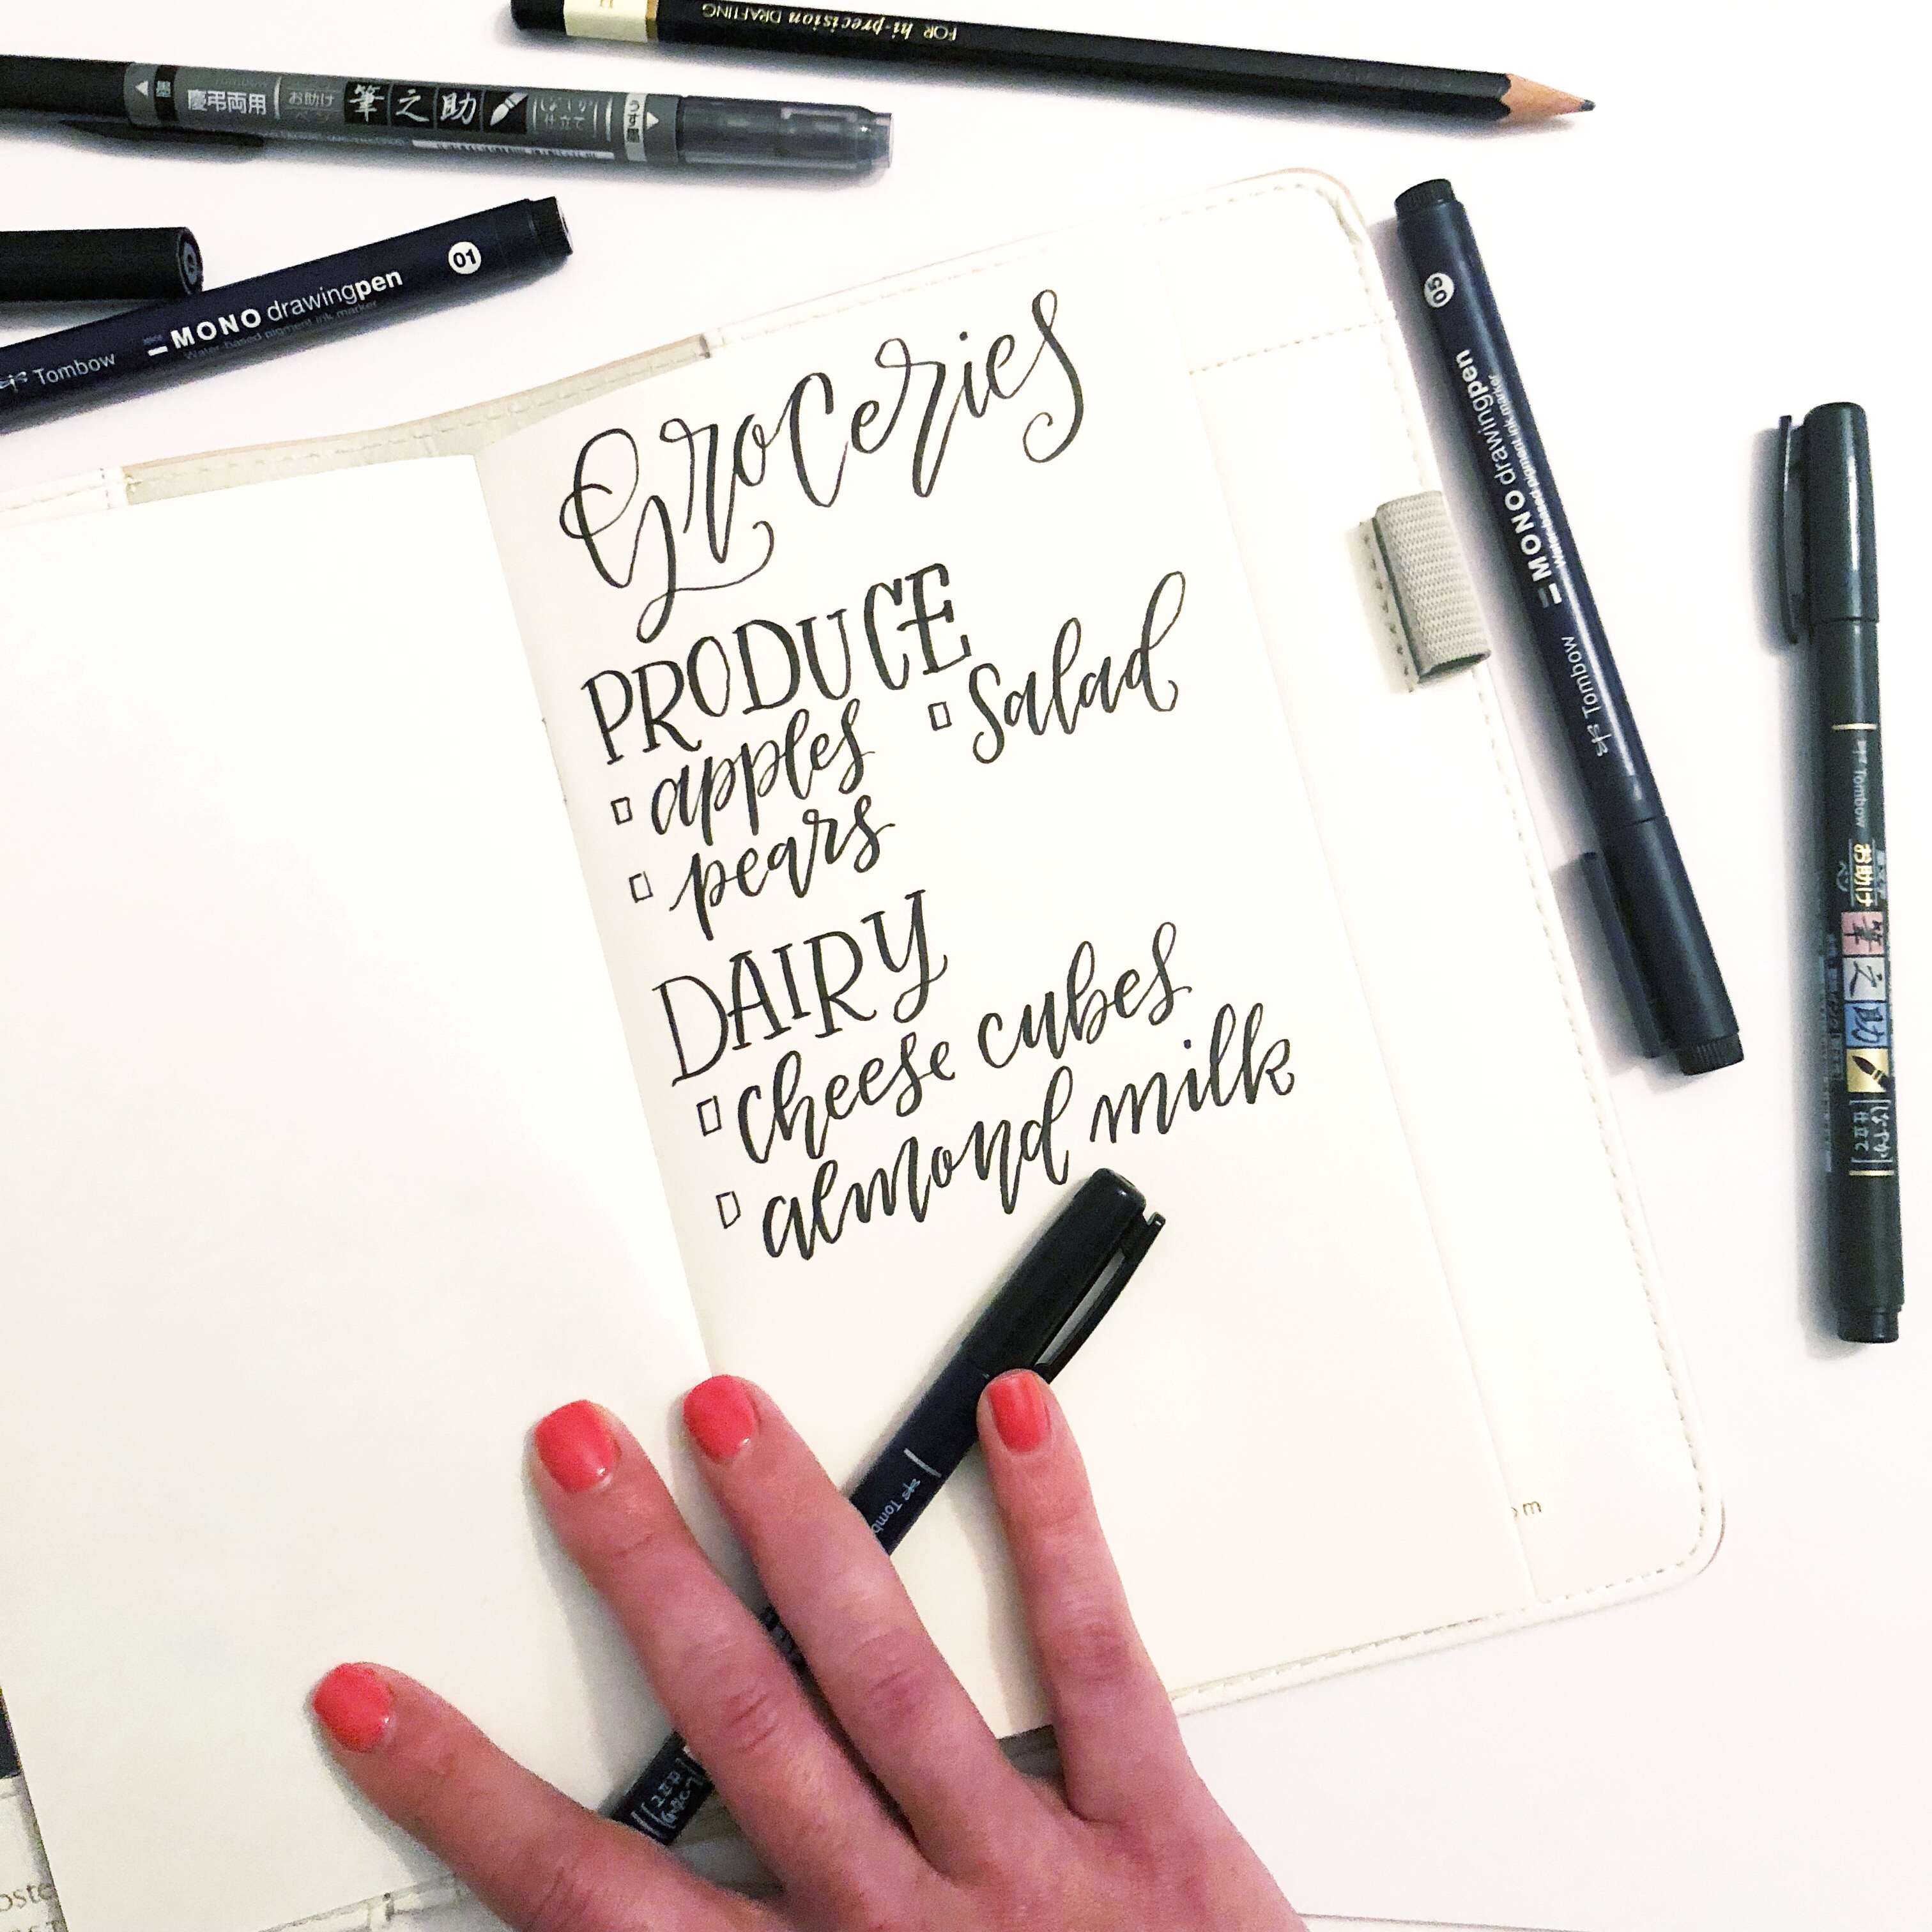 FOR hi-precision DRAFTING
H
慶弔両用 お助け 筆之助 しなやか 仕立て うす墨
墨
MONO drawingpen 01
Water-based pigment ink marker
Tombow
Groceries
PRODUCE
apples
salad
pears
DAIRY
cheese cubes
almond milk
05
MONO drawingpen
Water-based pigment ink marker
Tombow
Tombow
お助け
筆之助
仕立て
Tomb
仕立て
om
oste